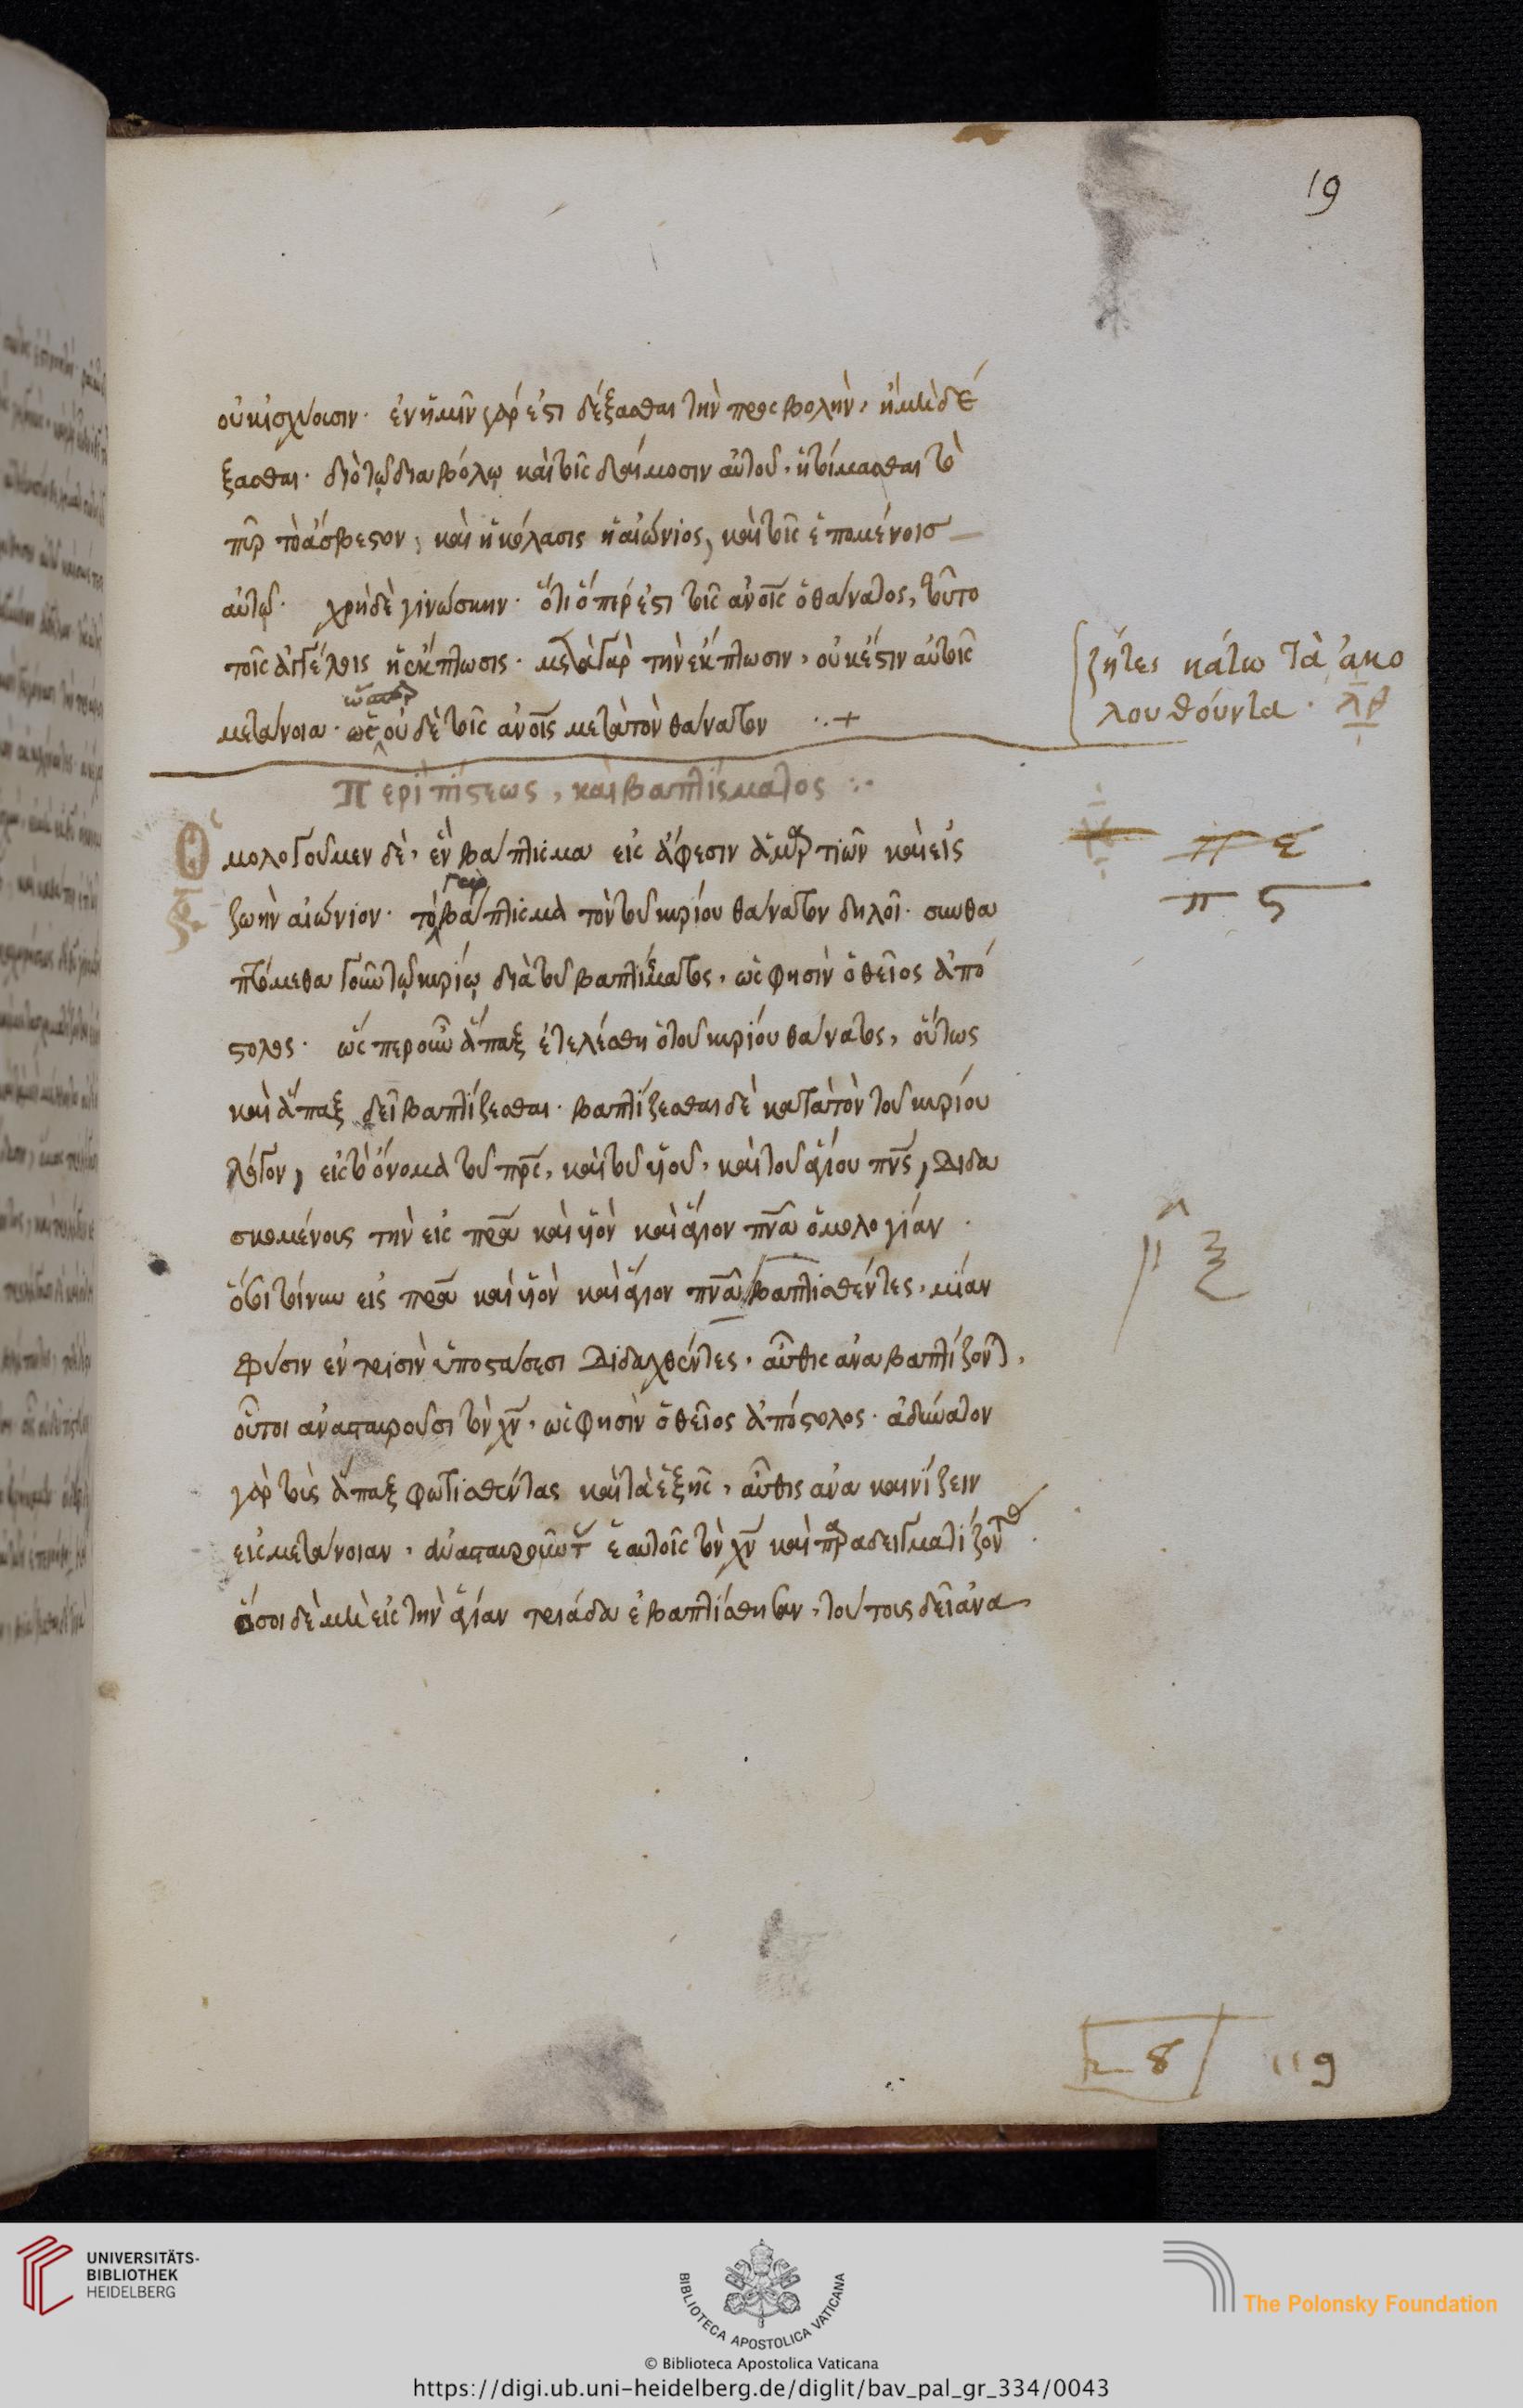 19
οὐκ ἰσχύουσιν· ἐν ἡμῖν γάρ ἐστι δέξασθαι τὴν προσβολὴν, ἢ μὴ δέ
ξασθαι· διὸ τῷ διαβόλῳ καὶ τοῖς δαίμοσιν αὐτοῦ, ἡτοίμασται τὸ
πῦρ τὸ ἄσβεστον, καὶ ἡ κόλασις ἡ αἰώνιος, καὶ τοῖς ἑπομένοις
αὐτῷ· χρὴ δὲ γινώσκειν· ὅτι ὅπερ ἐστι τοῖς ἀνοις ὁ θάνατος, τοῦτο
τοῖς ἀγγέλοις ἡ ἔκπτωσις· μετὰ γὰρ τὴν ἔκπτωσιν, οὐκ ἔστιν αὐτοῖς
ζήτει κάτω τὰ ἀκο
λουθοῦντα· λθ
μετάνοια· ὡς οὐδὲ τοῖς ἀνοις μετὰ τὸν θάνατον ··+
Περὶ πίστεως, καὶ βαπτίσματος :·
Ὁμολογοῦμεν δὲ, ἓν βάπτισμα εἰς ἄφεσιν ἁμαρτιῶν καὶ εἰς
π ε
π ϛ
γὰρ
ζωὴν αἰώνιον· τὸ βάπτισμα τὸν τοῦ κυρίου θάνατον δηλοῖ· συνθα
πτόμεθα γοῦν τῷ κυρίῳ διὰ τοῦ βαπτίσματος, ὥς φησὶν ὁ θεῖος ἀπό
στολος· ὥσπερ οὖν ἅπαξ ἐτελέσθη ὁ τοῦ κυρίου θάνατος, οὕτως
καὶ ἅπαξ δεῖ βαπτίζεσθαι· βαπτίζεσθαι δὲ κατὰ τὸν τοῦ κυρίου
λόγον, εἰς τὸ ὄνομα τοῦ πρς, καὶ τοῦ υἱοῦ, καὶ τοῦ ἁγίου πνς, διδα
σκομένους τὴν εἰς πρα καὶ υἱὸν καὶ ἅγιον πνα ὁμολογίαν·
ὅσοι τοίνυν εἰς πρα καὶ υἱὸν καὶ ἅγιον πνα βαπτισθέντες, μίαν
φύσιν ἐν τρισὶν ὑποστάσεσι διδαχθέντες, αὖθις ἀναβαπτίζοντ,
οὗτοι ἀνασταυροῦσι τὸν χν, ὥς φησὶν ὁ θεῖος ἀπόστολος· ἀδύνατον
γὰρ τοὺς ἅπαξ φωτισθέντας καὶ τὰ ἑξῆς, αὖθις ἀνακαινίζειν
εἰς μετάνοιαν, ἀνασταυροῦντ ἑαυτοῖς τὸν χν καὶ παραδειγματίζοντ
ὅσοι δὲ μὴ εἰς τὴν ἁγίαν τριάδα ἐβαπτίσθησαν, τούτους δεῖ ἀνα
119
UNIVERSITÄTS-
BIBLIOTHEK
HEIDELBERG
BIBLIOTECA APOSTOLICA VATICANA
The Polonsky Foundation
© Biblioteca Apostolica Vaticana
https://digi.ub.uni-heidelberg.de/diglit/bav_pal_gr_334/0043